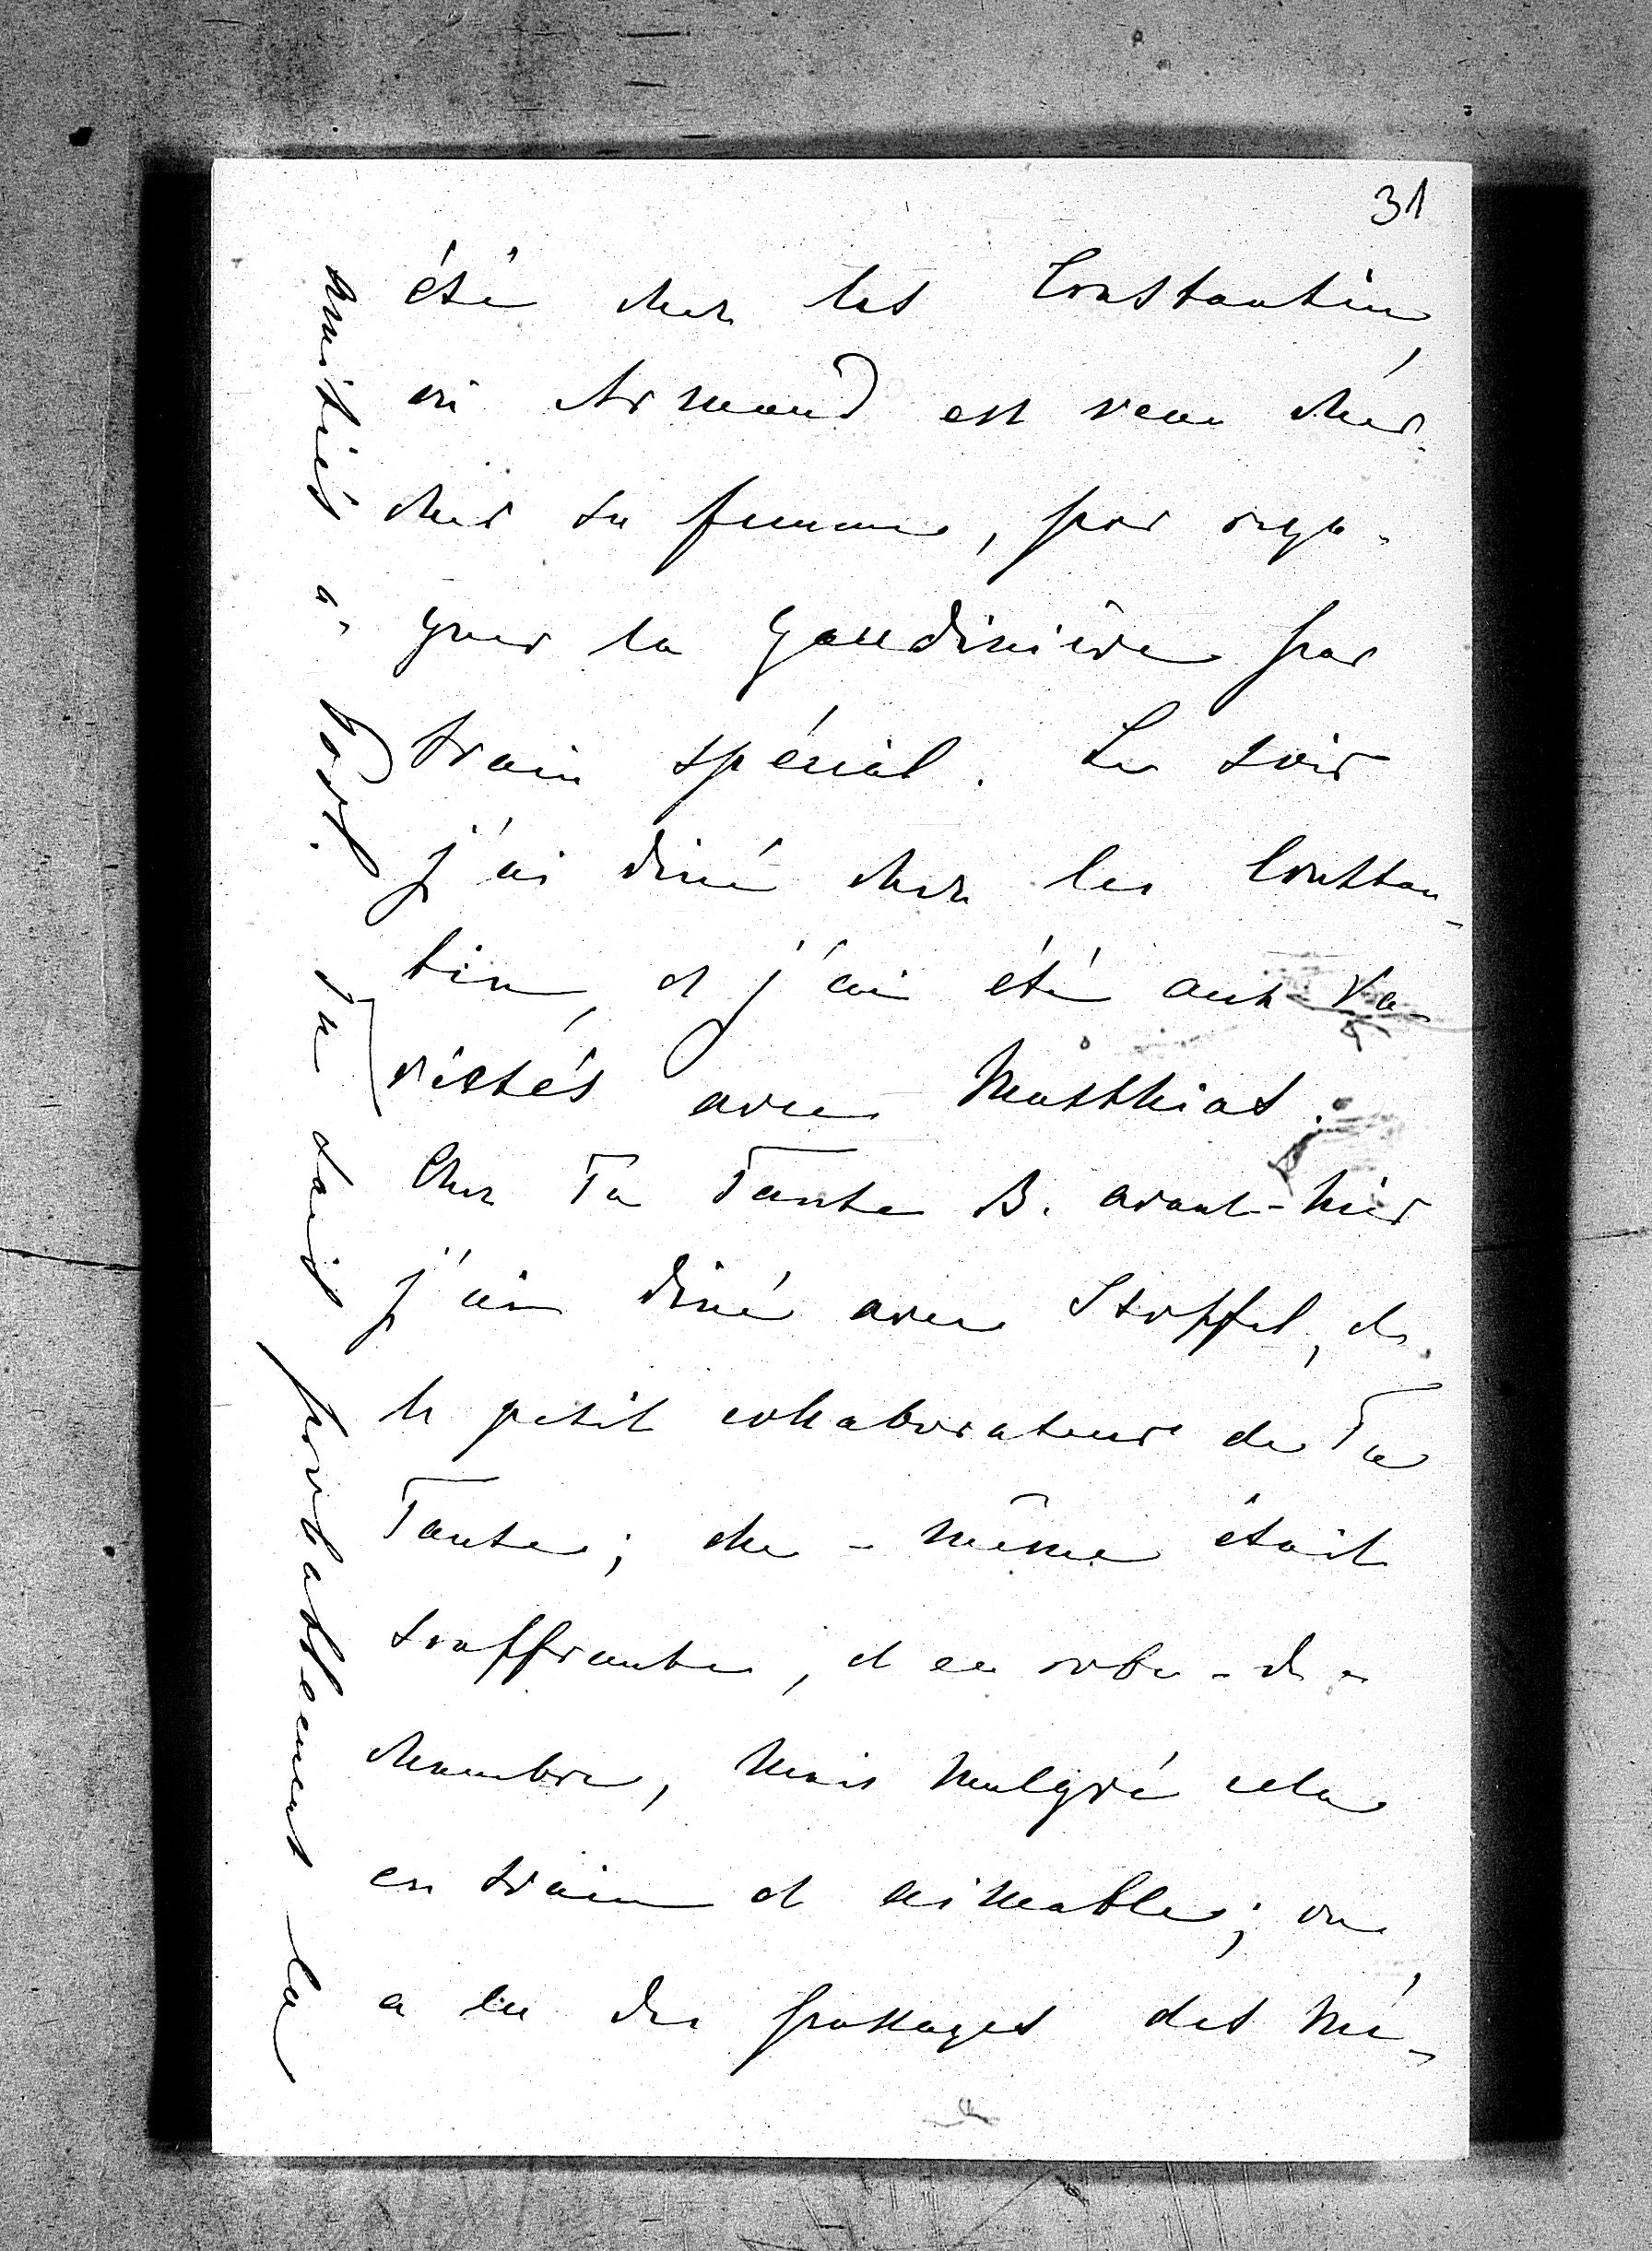 31
été chez les Constantin,
où Armand est venu cher-
cher sa femme, pour rega-
gner la Gaudinière par
train spécial. Le soir
j'ai diné chez les Constan-
tin, et j'ai été aux Va-
riétés avec Matthias.
Chez Ta Tante B. avant-hier
j'ai diné avec Stoffel, et
le petit collaborateur de Ta
Tante; elle-même était
souffrante, et en robe-de-
chambre, mais malgré cela
en train et aimable; on
a lu des passages des Mé-
amitiés à
Tu sais probablement la